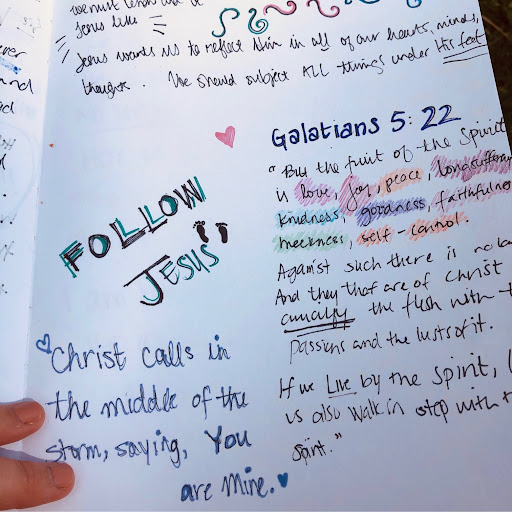 we must
Jesus like
Jesus wants us to reflect Him in all of our hearts, minds,
thoughts. We should subject ALL things under His feet
Galatians 5:22
"But the fruit of the Spirit
is love, joy, peace, longsuffering
kindness goodness, faithfulne
meekness, self-control.
Against such there is no la
And they that are of Christ
the flesh with t
passions and the lusts of it.
If we Live by the Spirit, l
us also walk in step with t
spirit."
FOLLOW
JESUS
Christ calls in
the middle of the
storm, saying, You
are mine.